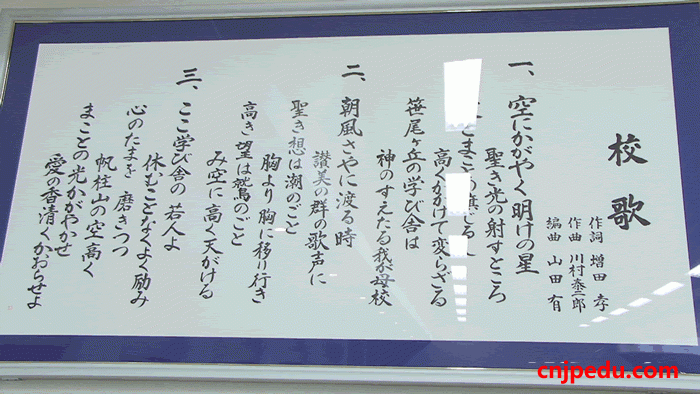 校歌
作詞 増田 孝
作曲 川村泰三郎
編曲 山田 有
一、空にかがやく明けの星
聖き光の射すところ
とまことの旗じるし
高くかかげて変らざる
笹尾ヶ丘の学び舎は
神のすえたる我が母校
二、朝風さやに渡る時
讃美の群の歌声に
聖き想は潮のごと
胸より胸に移り行き
高き望は鷲鳥のごと
み空に高く天がける
三、ここ学び舎の若人よ
休むことなくよく励み
心のたまを磨きつつ
帆柱山の空高く
まことの光かがやかせ
愛の香清くかおらせよ
cnjpedu.com